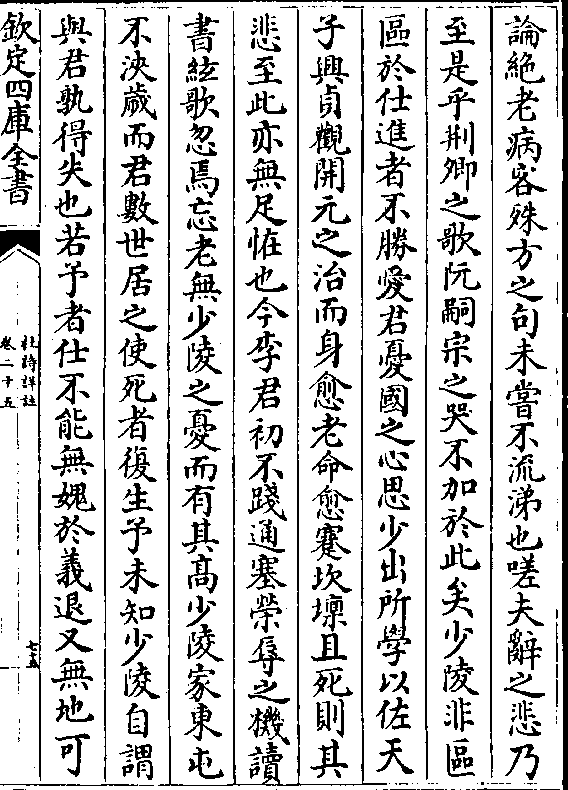 論絶老病客殊方之句未嘗不流涕也嗟夫辭之悲乃
至是乎荆卿之歌阮嗣宗之哭不加於此矣少陵非區
區於仕進者不勝愛君憂國之心思少出所學以佐天
子興貞觀開元之治而身愈老命愈蹇坎壈且死則其
悲至此亦無足怪也今李君初不踐通塞榮辱之機讀
書絃歌忽焉忘老無少陵之憂而有其髙少陵家東屯
不浹歲而君數世居之使死者復生予未知少陵自謂
與君孰得失也若予者仕不能無媿於義退又無地可
欽定四庫全書
杜詩詳註
卷二十五
七五